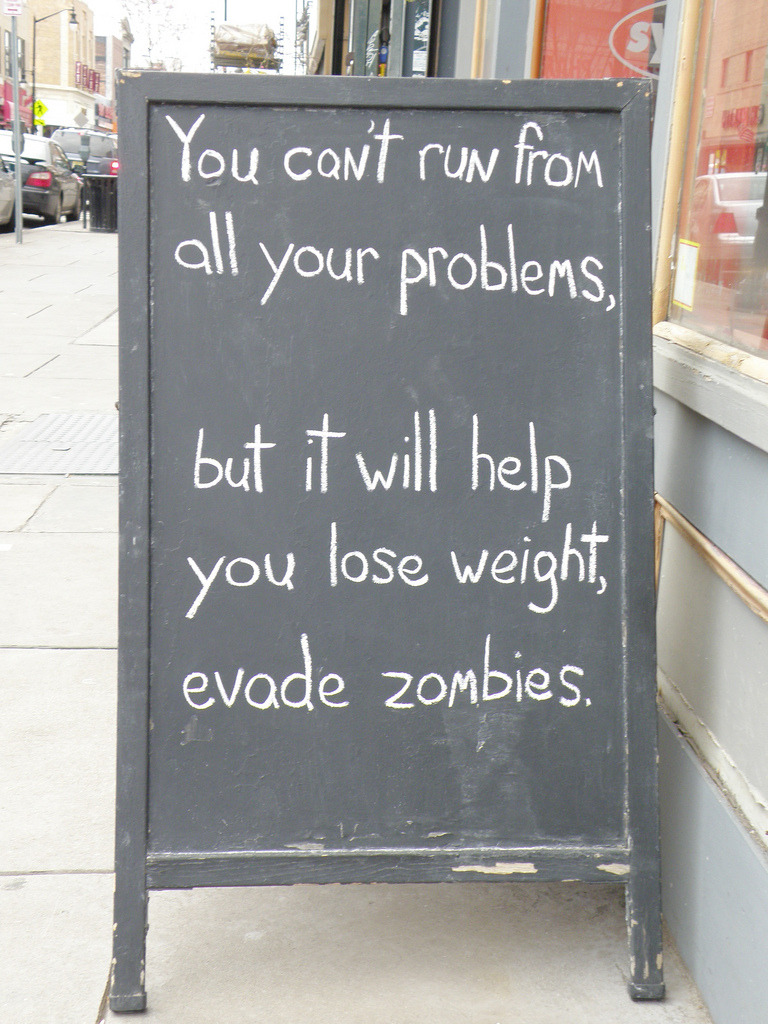 You can't run from
all your problems,
but it will help
you lose weight,
evade zombies.